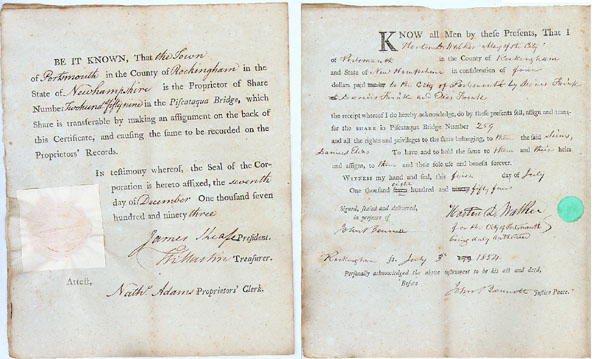 BE IT KNOWN, That the Town
of Portsmouth in the County of Rockingham in the
State of Newhampshire is the Proprietor of Share
Number Two hund fifty nine in the Piscataqua Bridge, which
Share is transferable by making an assignment on the back
of this Certificate, and causing the same to be recorded on the
Proprietors' Records.
IN testimony whereof, the Seal of the Cor-
poration is hereto affixed, the seventh
day of December One thousand seven
hundred and ninety three
James Sheafe President.
Treasurer.
Attest,
Nathl Adams Proprietors' Clerk.
KNOW all Men by these Presents, That I
Horton D. Walker Mayor of the City
of Portsmouth in the County of Rockingham
and State of New Hampshire in consideration of four
dollars paid to the City of Portsmouth by
the receipt whereof I do hereby acknowledge, do by these presents sell, assign and trans-
fer the SHARE in Piscataqua Bridge Number 259
and all the rights and privileges to the same belonging, to them the said
To have and to hold the same to them and their heirs
and assigns, to them and their sole use and benefit forever.
WITNESS my hand and seal, this day of July
One thousand eight hundred and fifty four
Signed, sealed and delivered,
in presence of
Horton D. Walker
for the City of Portsmouth
being duly authorized
Rockingham ss. July 5th 1854.
Personally acknowledged the above instrument to be his act and deed,
Before
Justice Peace.